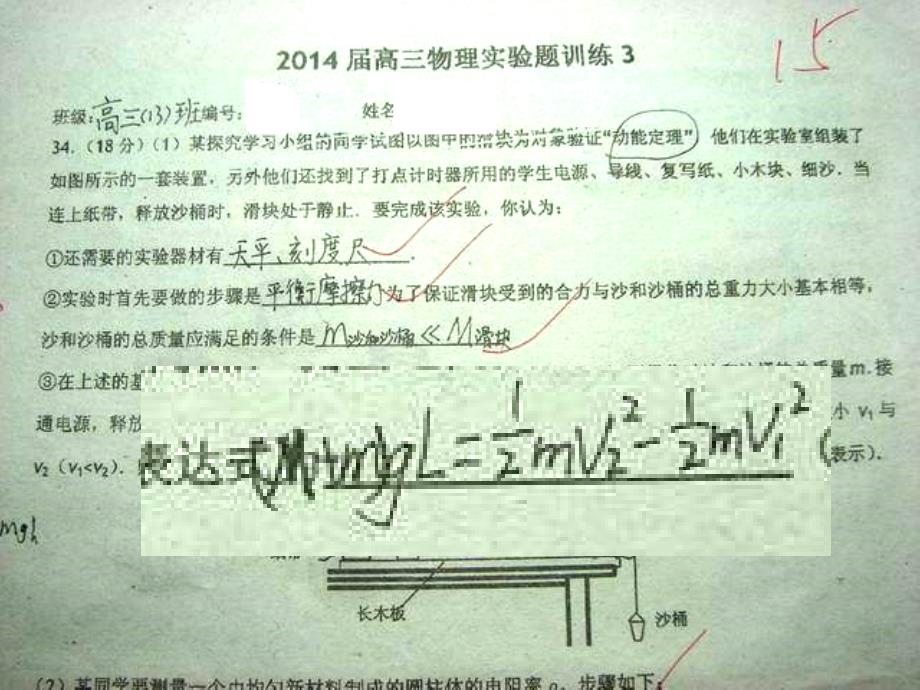 15
2014 届高三物理实验题训练 3
班级:高三(13)班编号: 姓名
34.(18 分)(1)某探究学习小组的同学试图以图中的滑块为对象验证“动能定理”,他们在实验室组装了
如图所示的一套装置,另外他们还找到了打点计时器所用的学生电源、导线、复写纸、小木块、细沙.当
连上纸带,释放沙桶时,滑块处于静止.要完成该实验,你认为:
①还需要的实验器材有 天平、刻度尺 .
②实验时首先要做的步骤是 平衡摩擦力 为了保证滑块受到的合力与沙和沙桶的总重力大小基本相等,
沙和沙桶的总质量应满足的条件是 m沙和沙桶≪M滑块
③在上述的基 量 m.接
通电源,释放 小 v₁与
v₂(v₁<v₂). 表达式 mgL=½mV₂²-½mV₁² (表示).
mgh
长木板 沙桶
(2)某同学要测量一个由均匀新材料制成的圆柱体的电阻率 ρ。步骤如下: